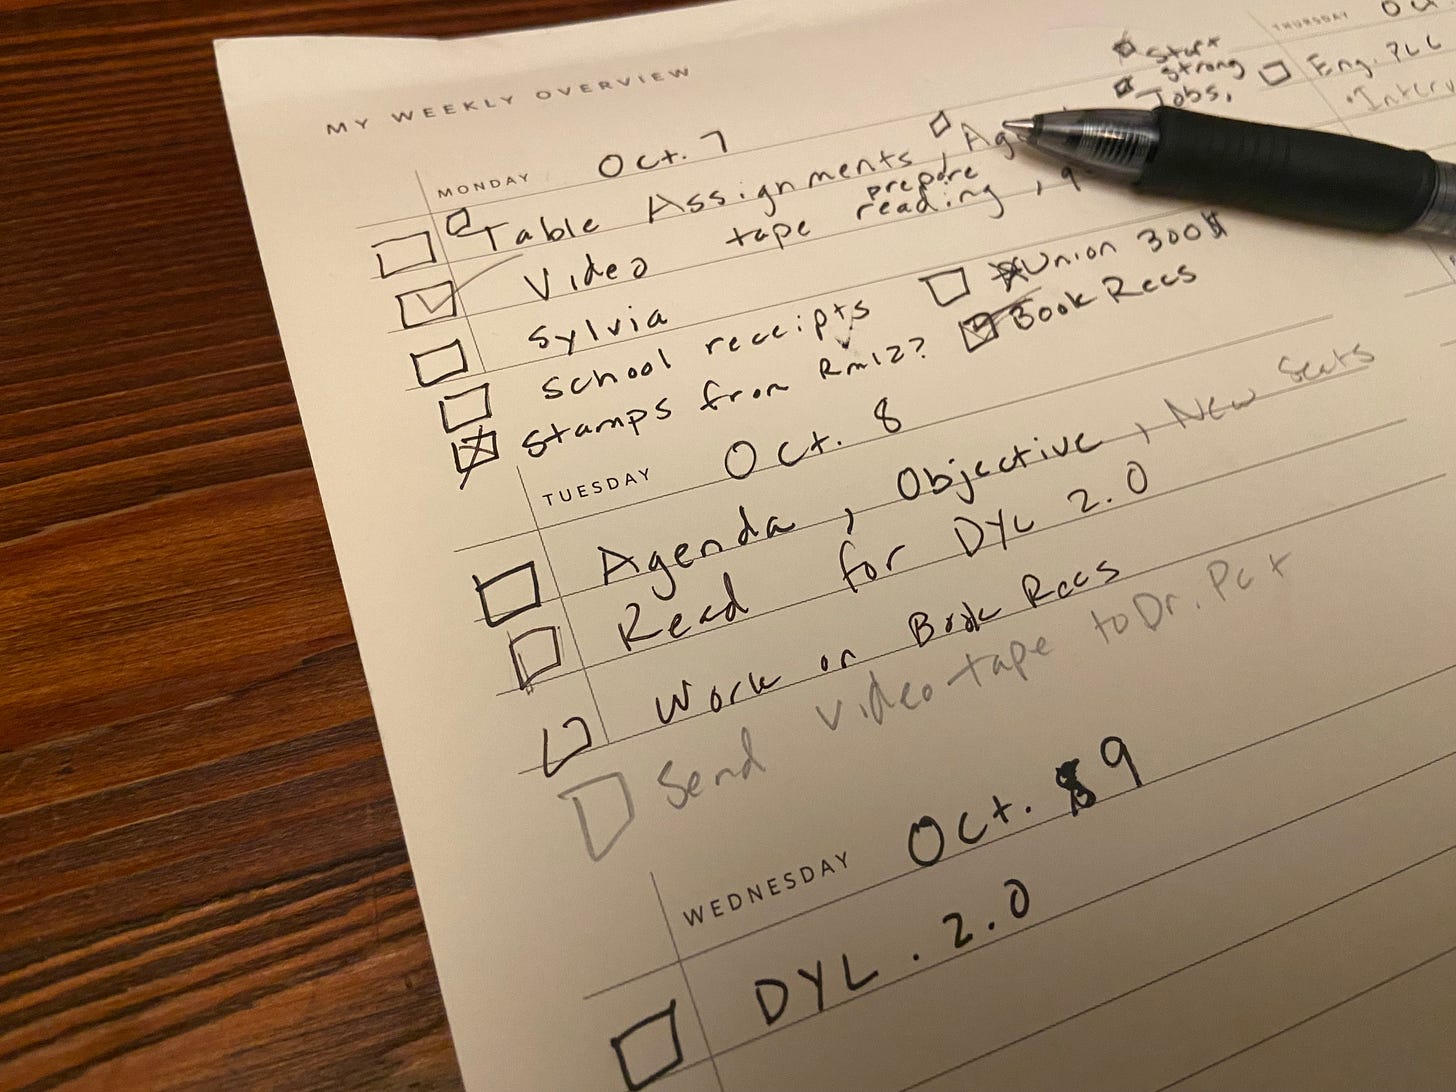 MY WEEKLY OVERVIEW
MONDAY Oct. 7
Table Assignments,
Video tape prepare reading,
Sylvia
School receipts
Stamps from Rm12?
Union 300$
Book Recs
Start
Strong
Jobs.
TUESDAY Oct. 8
Agenda, Objective, New Seats
Read for DYL 2.0
Work on Book Recs
Send video tape to Dr. Pat
WEDNESDAY Oct. 9
DYL. 2.0
THURSDAY
Eng. PLC